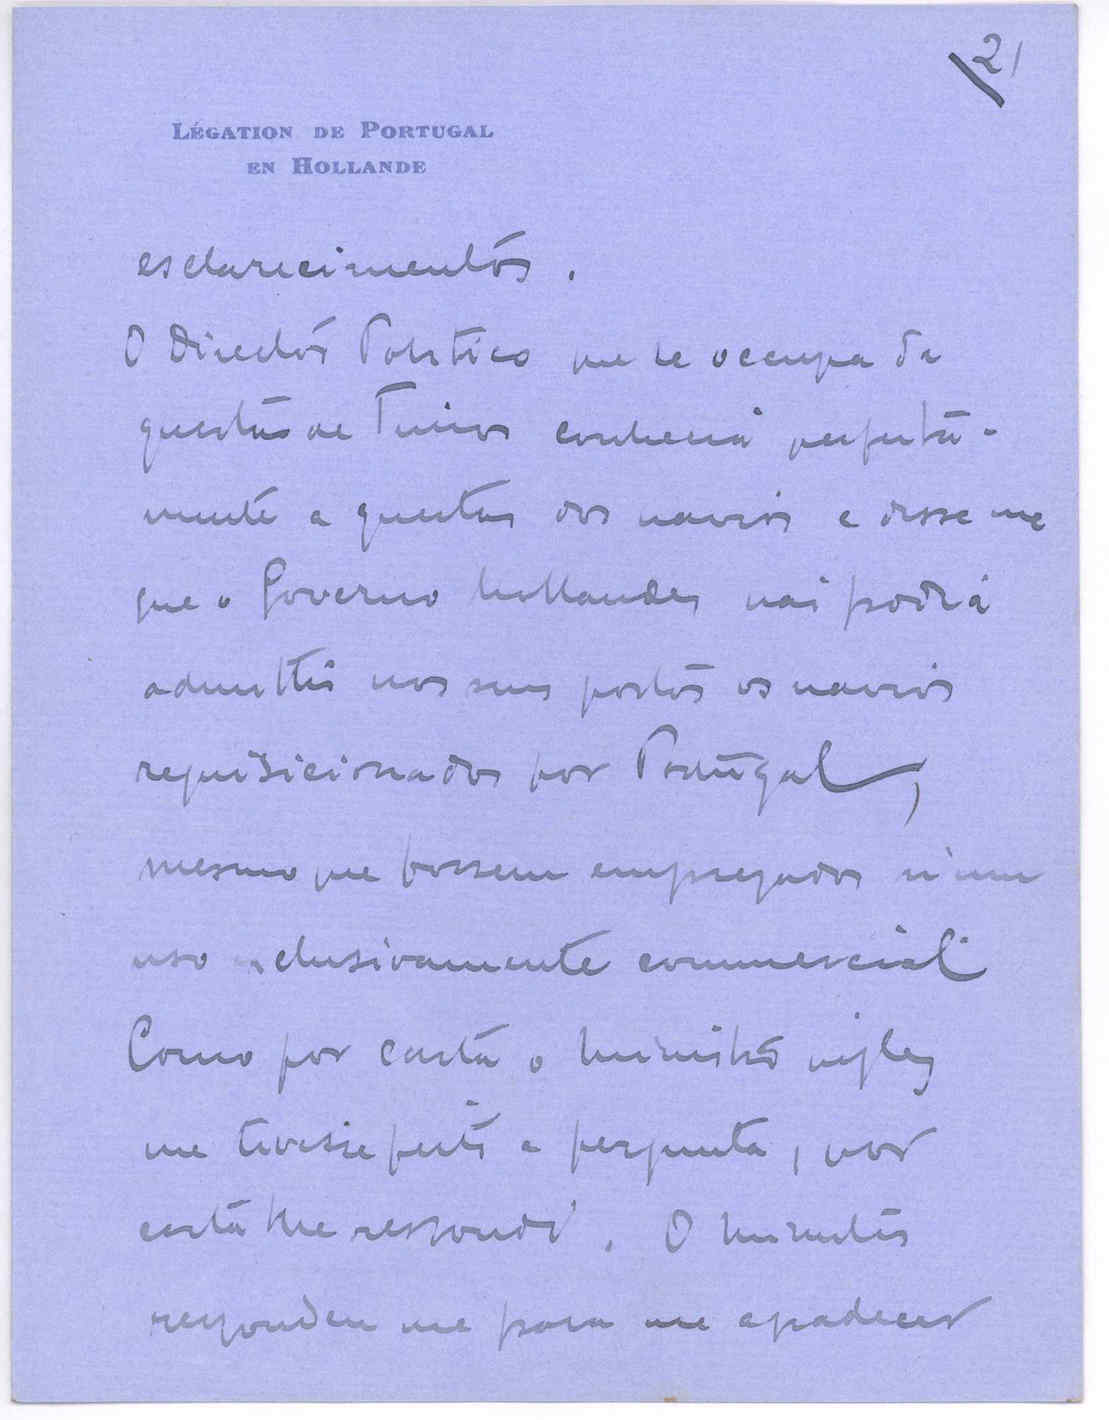 21
LÉGATION DE PORTUGAL
EN HOLLANDE
esclarecimentos.
O Director Politico que se occupa da
questão de Timor conhecia perfeita-
mente a questão dos navios e disse me
que o Governo hollandez não podia
admittir nos seus portos os navios
requisicionados por Portugal,
mesmo que fossem empregados n'um
uso exclusivamente commercial.
Como por carta o ministro inglez
me tivesse feito a pergunta, por
carta lhe respondi. O ministro
respondeu me para me agradecer